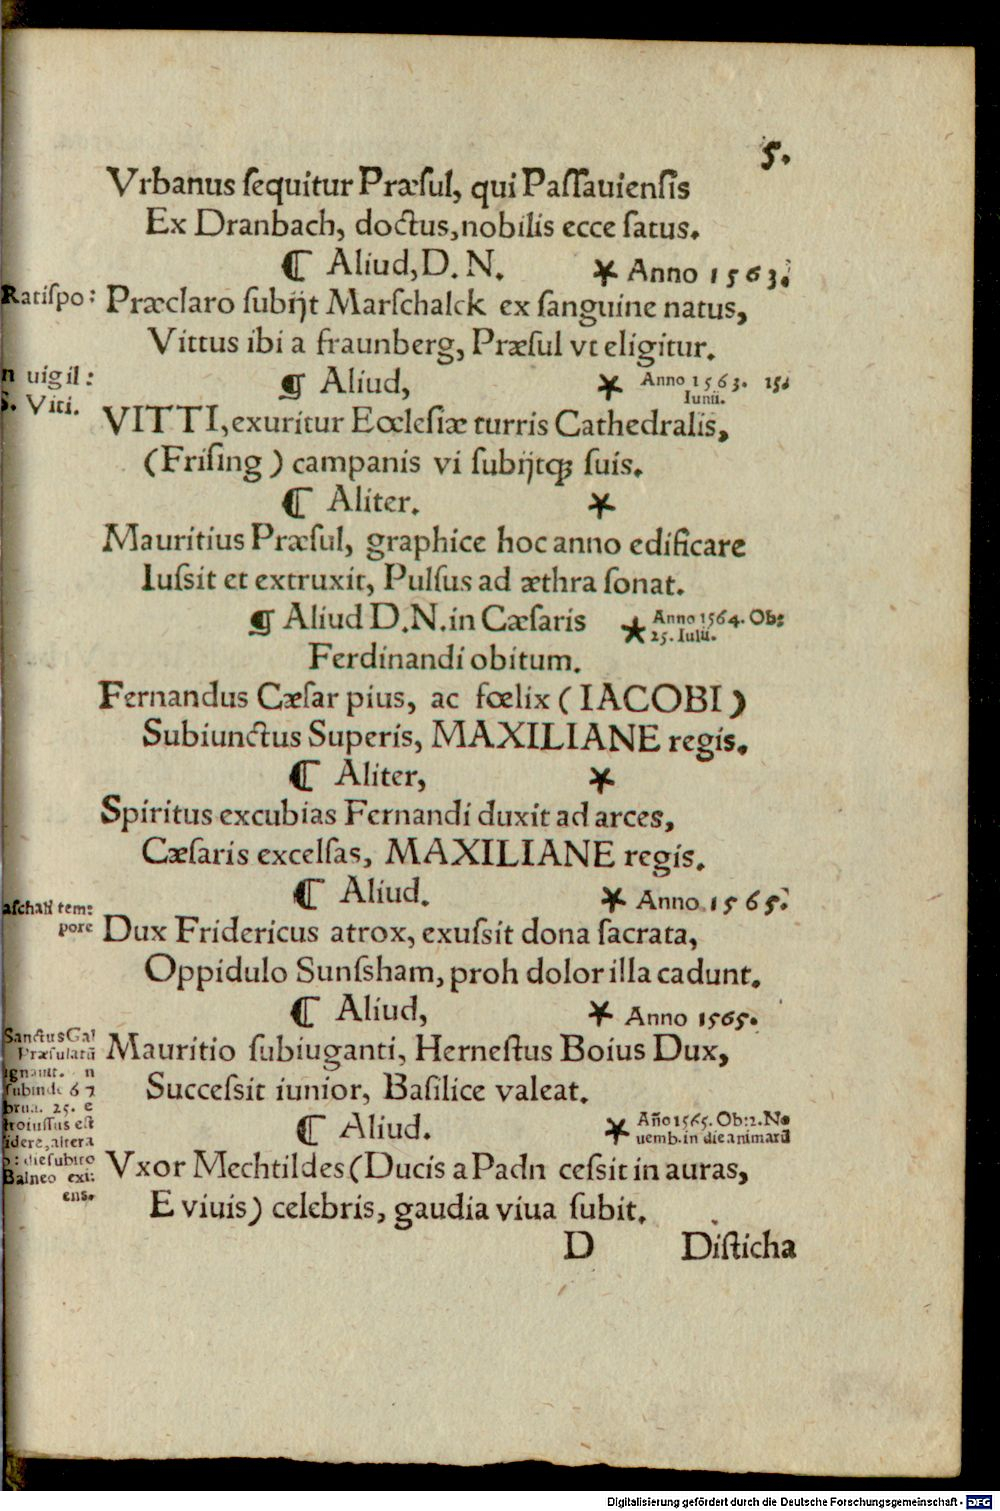 5.
Vrbanus ſequitur Præſul, qui Paſſauienſis
Ex Dranbach, doctus, nobilis ecce ſatus.
¶ Aliud, D. N. * Anno 1563.
Ratiſpo: Præclaro ſubijt Marſchalck ex ſanguine natus,
Vittus ibi a fraunberg, Præſul vt eligitur.
n uigil: ¶ Aliud, * Anno 1563. 15.
Iunii.
S. Viti.
VITTI, exuritur Ecclеſiæ turris Cathedralis,
(Friſing) campanis vi ſubijtqꝫ ſuis.
¶ Aliter. *
Mauritius Præſul, graphice hoc anno edificare
Iuſsit et extruxit, Pulſus ad æthra ſonat.
¶ Aliud D. N. in Cæſaris * Anno 1564. Ob:
25. Iulii.
Ferdinandi obitum.
Fernandus Cæſar pius, ac fœlix (IACOBI)
Subiunctus Superis, MAXILIANE regis.
¶ Aliter, *
Spiritus excubias Fernandi duxit ad arces,
Cæſaris excelſas, MAXILIANE regis.
¶ Aliud. * Anno 1565.
aſchali tem:
pore Dux Fridericus atrox, exuſsit dona ſacrata,
Oppidulo Sunſsham, proh dolor illa cadunt.
¶ Aliud, * Anno 1565.
Sanctus Gal
Præſulatū Mauritio ſubiuganti, Herneſtus Boius Dux,
ignauit. n
ſubinde 67 Succeſsit iunior, Baſilice valeat.
brua. 25. e
troiuſſus eſt ¶ Aliud. * Añо 1565. Ob: 2. No
uemb. in die animarū
ſidere, altera
: die ſubito Vxor Mechtildes (Ducis a Padn ceſsit in auras,
Balneo exi:
ens. E viuis) celebris, gaudia viua ſubit.
D Diſticha
Digitalisierung gefördert durch die Deutsche Forschungsgemeinschaft - DFG